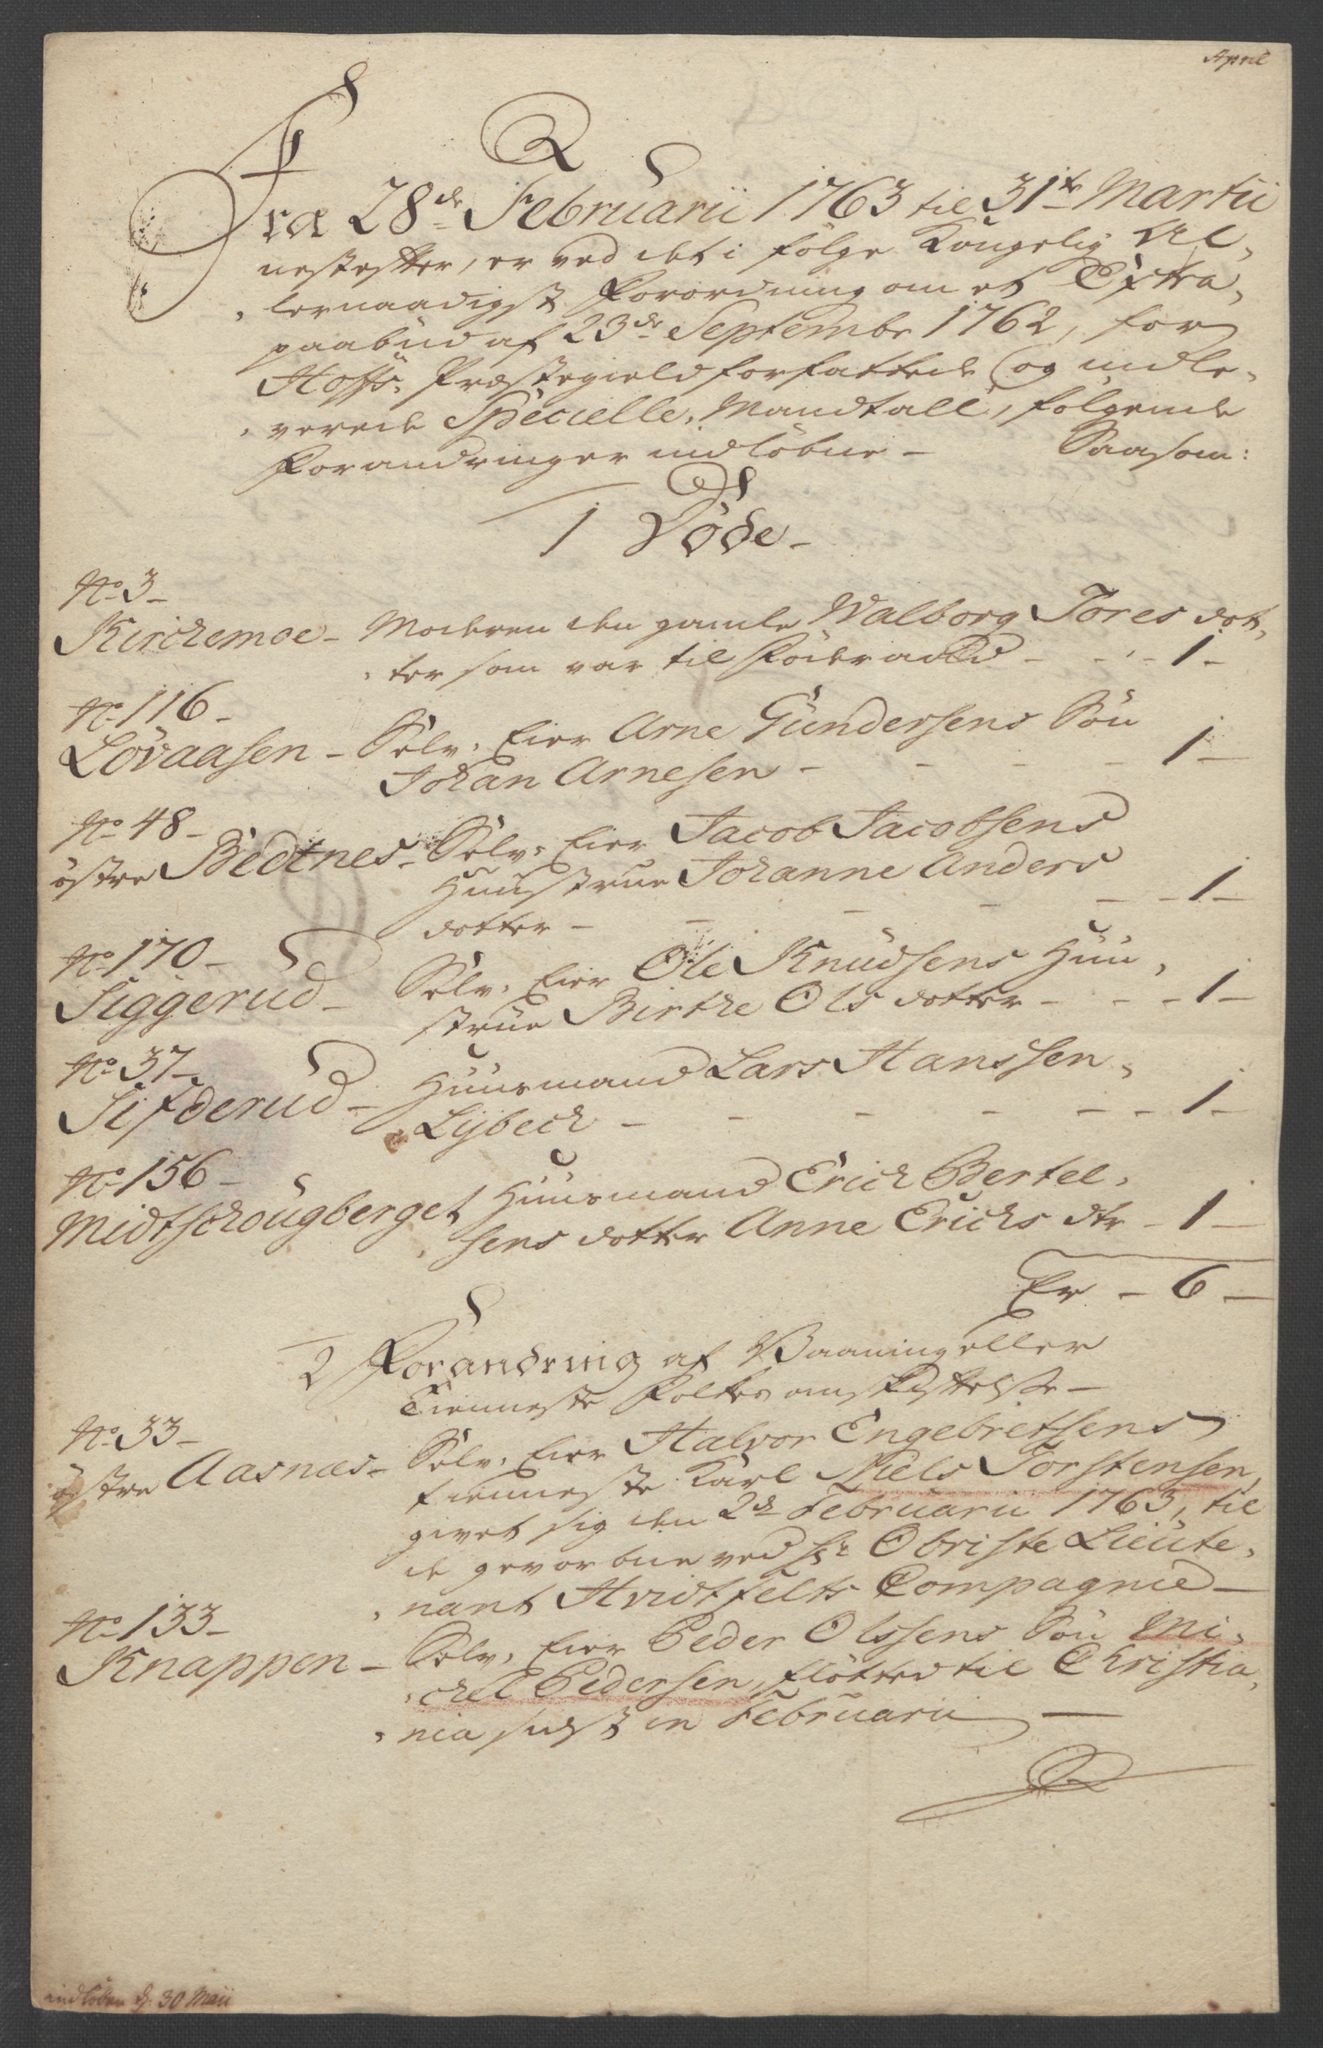 April
Fra 28de Februarii 1763 til 31te Martii
nestefter, er ved det i følge Kongelig Al-
lernaadigst Forordning om et Extra-
paabud af 23de Septembr 1762, for
Hoffs Præstegield forfattede og indle-
verede Specielle Mandtall, følgende
Forandringer indløbne - Saasom:
1 Døde -
No 3 -
Kirckemoe - Moderen den gamle Walborg Tores dot-
ter som var til Føderaad - - - 1 -
No 116 -
Lövaasen - Selv-Eier Arne Gundersens Søn
Johan Arnesen - - - - 1 -
No 48 -
östre Bedtnes - Selv-Eier Jacob Jacobsens
Huustrue Johanne Anders
dotter - - - - - 1 -
No 170 -
Siggerud - Selv-Eier Ole Knudsens Huu-
strue Birthe Ols dotter - - - 1 -
No 37 -
Sifderud - Huusmand Lars Hanssen
Lybeck - - - - - - 1 -
No 156 -
Midtschougberget Huusmand Erich Bertel-
sens dotter Anne Erichs dtr - 1 -
Er - 6 -
2 Forandring af Vaaning eller
Tienneste Folkes omskiftelse -
No 33 -
östre Aasnæs - Selv-Eier Halvor Engebretsens
tienneste Karl Niels Torstensen,
givet sig den 2de Februarii 1763, til
de gevorbne ved Hr Obriste Lieute-
nant Hvidtfelts Compagnie -
No 133 -
Knappen - Selv-Eier Peder Olssens Søn Mi-
chel Pedersen, fløtted til Christia-
nia sidst in Februarii -
indløben d. 30 Maii